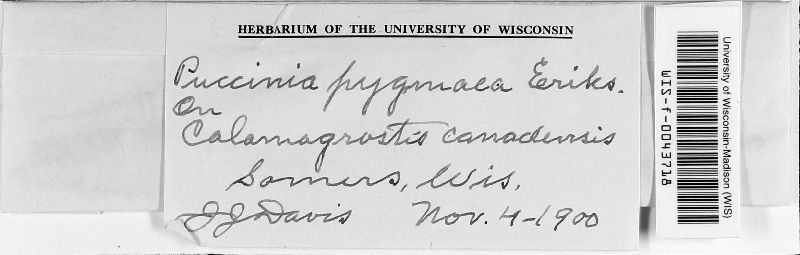 HERBARIUM OF THE UNIVERSITY OF WISCONSIN
Puccinia pygmaea Eriks.
On
Calamagrostis canadensis
Somers, Wis.
J J Davis Nov. 4-1900
University of Wisconsin-Madison (WIS)
WIS-f-0043718